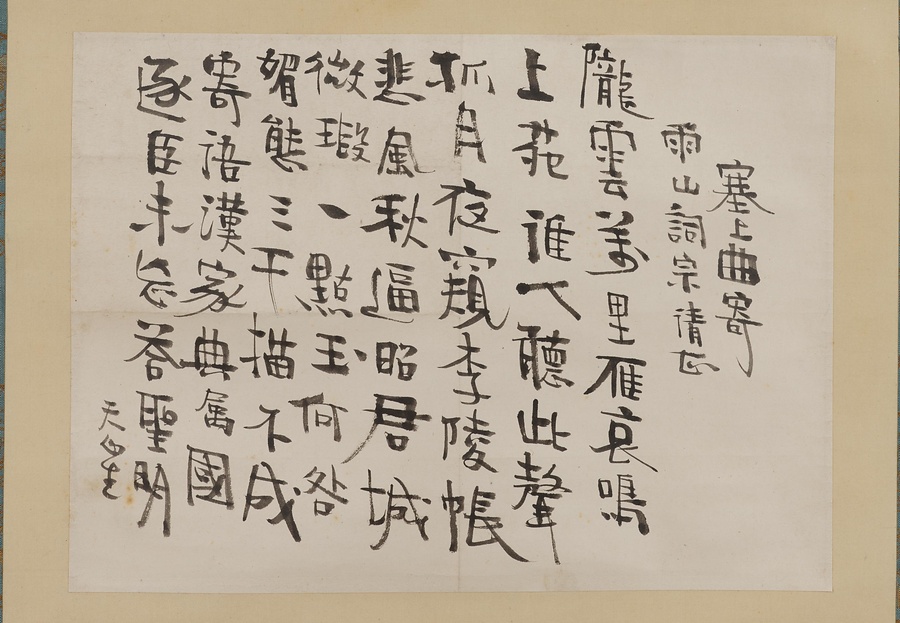 塞上曲寄
雨山詞宗清正
隴雲萬里雁哀鳴
上苑誰人聽此聲
孤月夜窺李陵帳
悲風秋逼昭君城
微瑕一點玉何咎
媚態三千描不成
寄語漢家典属國
逐臣未忘答聖明
天仙生